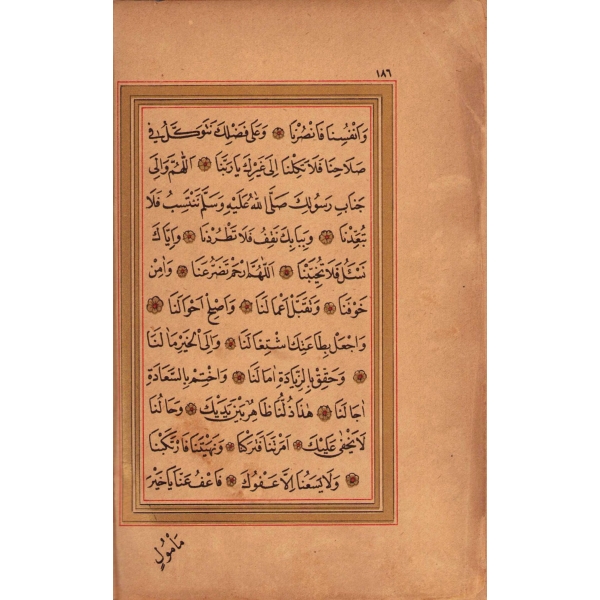 ١٨٦
وَاَنْفُسِنَا فَانْصُرْنَا ۞ وَعَلٰى فَضْلِكَ نَتَوَكَّلُ فِى
صَلَاحِنَا فَلَا تَكِلْنَا اِلٰى غَيْرِكَ يَا رَبَّنَا ۞ اَللّٰهُمَّ وَاِلٰى
جَنَابِ رَسُولِكَ صَلَّى اللّٰهُ عَلَيْهِ وَسَلَّمَ نَنْتَسِبُ فَلَا
تُبَعِّدْنَا ۞ وَبِبَابِكَ نَقِفُ فَلَا تَطْرُدْنَا ۞ وَاِيَّاكَ
نَسْئَلُ فَلَا تُخَيِّبْنَا ۞ اَللّٰهُمَّ ارْحَمْ تَضَرُّعَنَا ۞ وَاٰمِنْ
خَوْفَنَا ۞ وَتَقَبَّلْ اَعْمَالَنَا ۞ وَاَصْلِحْ اَحْوَالَنَا ۞
وَاجْعَلْ بِطَاعَتِكَ اشْتِغَالَنَا ۞ وَاِلَى الْخَيْرِ مَاٰلَنَا
۞ وَحَقِّقْ بِالزِّيَادَةِ اٰمَالَنَا ۞ وَاخْتِمْ بِالسَّعَادَةِ
اٰجَالَنَا ۞ هٰذَا ذُلُّنَا ظَاهِرٌ بَيْنَ يَدَيْكَ ۞ وَحَالُنَا
لَا يَخْفٰى عَلَيْكَ ۞ اَمَرْتَنَا فَتَرَكْنَا ۞ وَنَهَيْتَنَا فَارْتَكَبْنَا
۞ وَلَا يَسَعُنَا اِلَّا عَفْوُكَ ۞ فَاعْفُ عَنَّا يَا خَيْرَ
مَأْمُولٍ